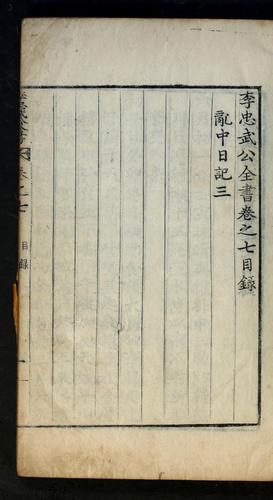 李忠武公全書卷之七目錄
亂中日記三
卷之七
目錄